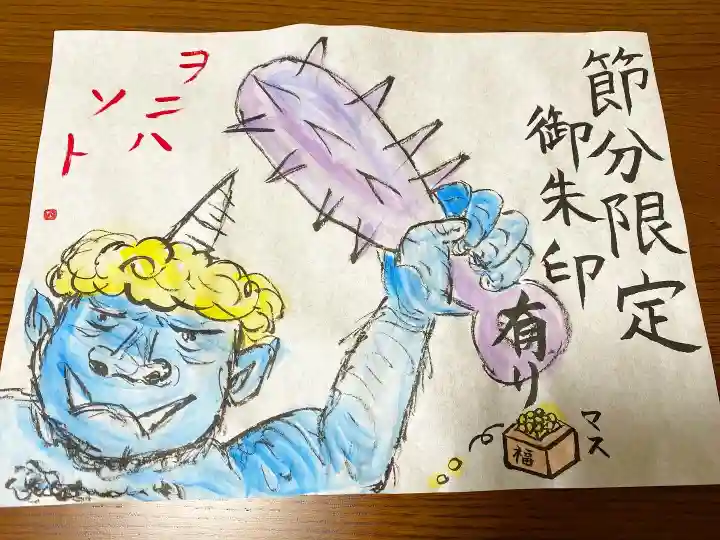 節分限定
御朱印
有リ
マス
福
ヲニハ
ソト